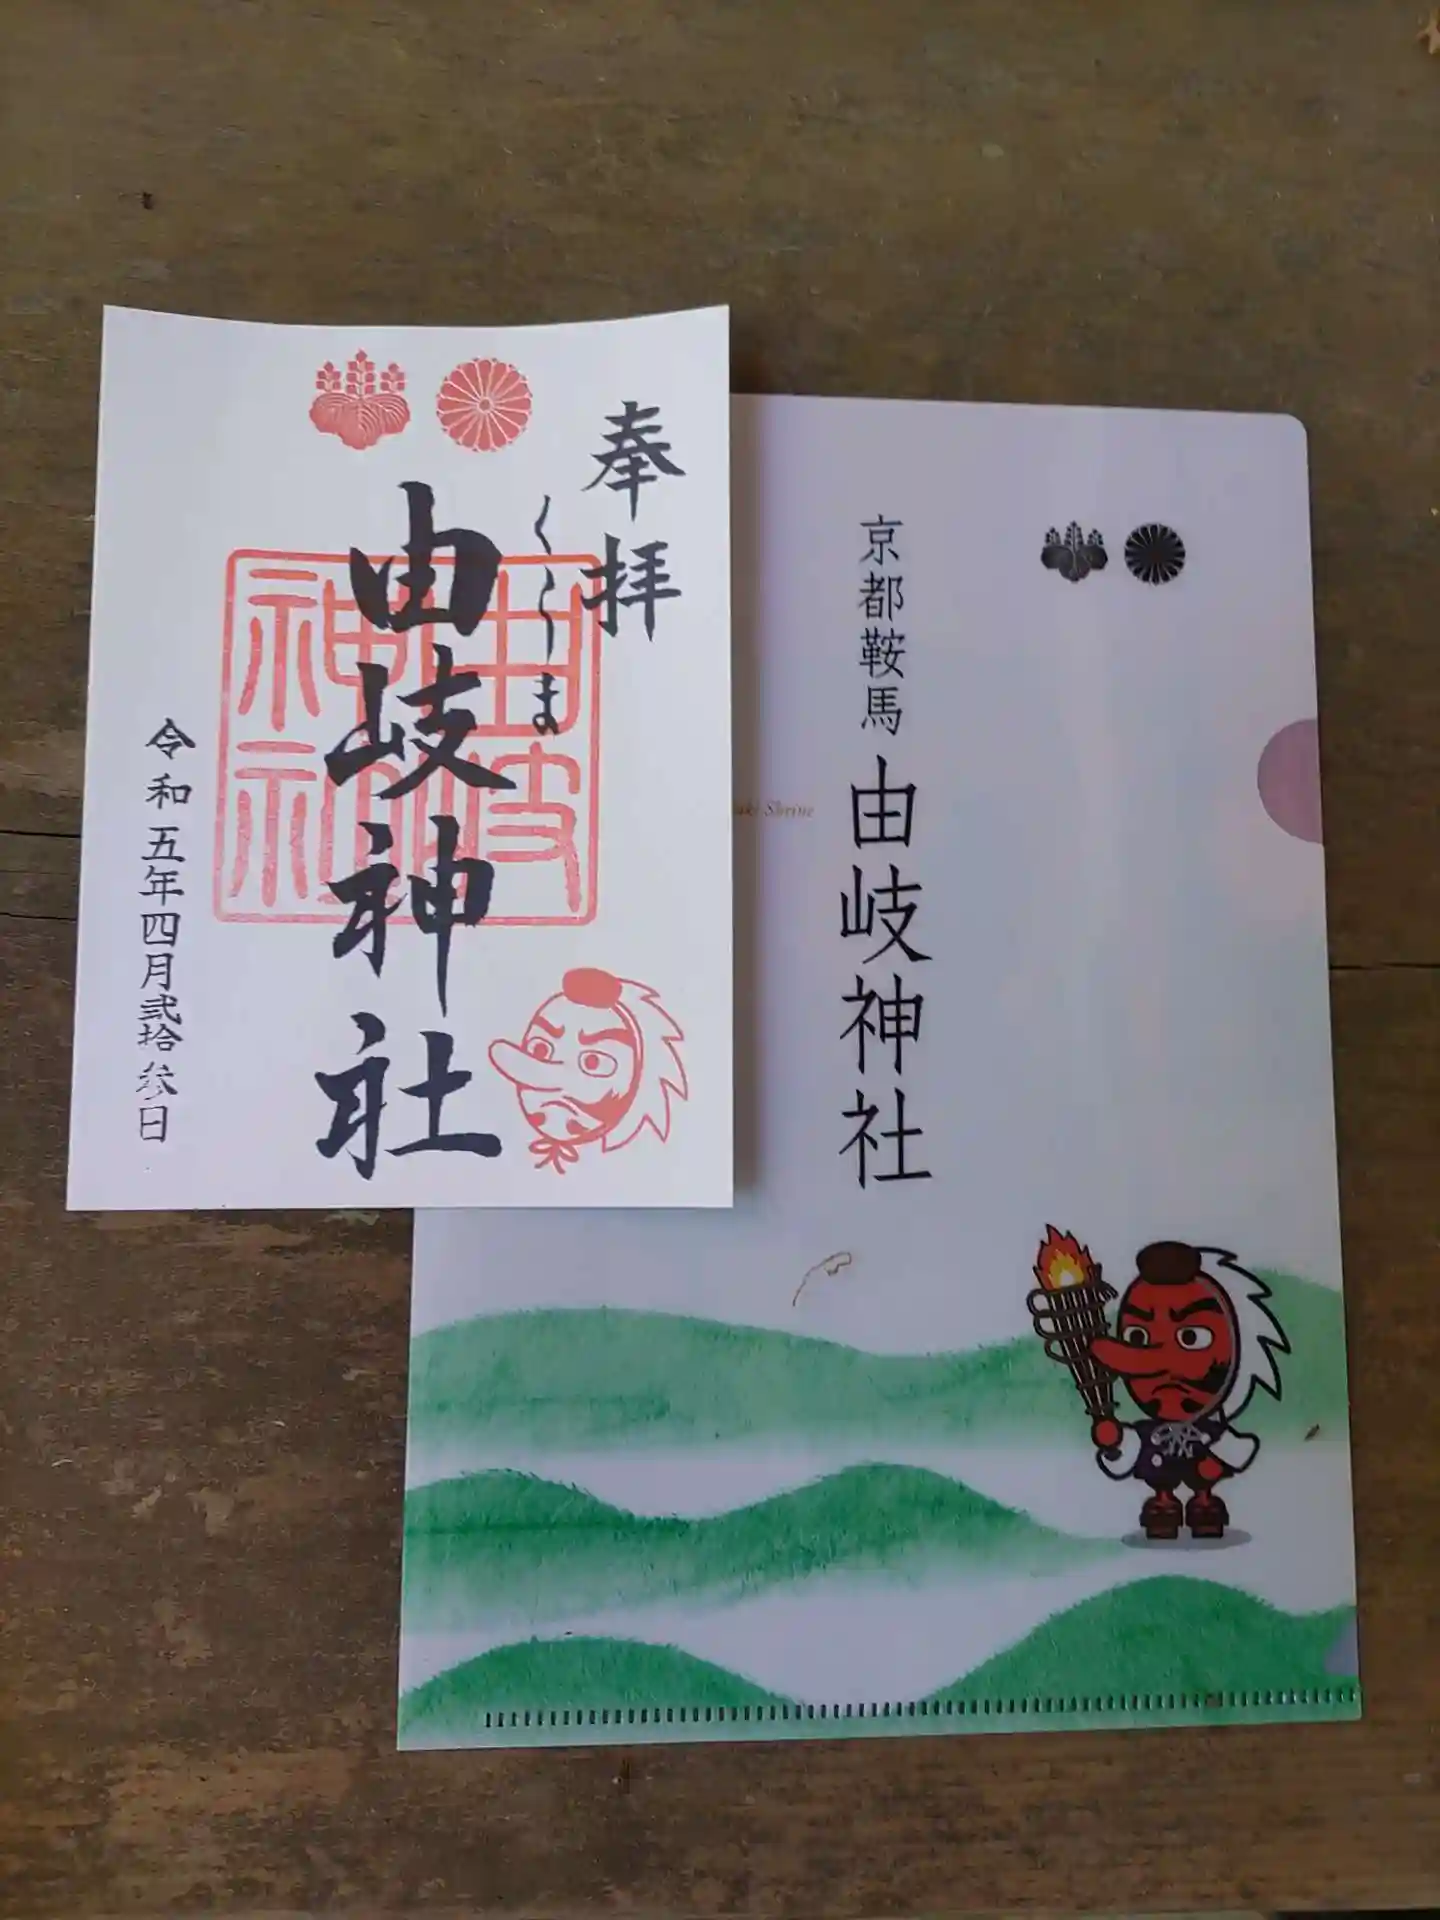 奉拝
くらま
由岐神社
由岐神社
令和五年四月弐拾参日
京都鞍馬 由岐神社
Shrine